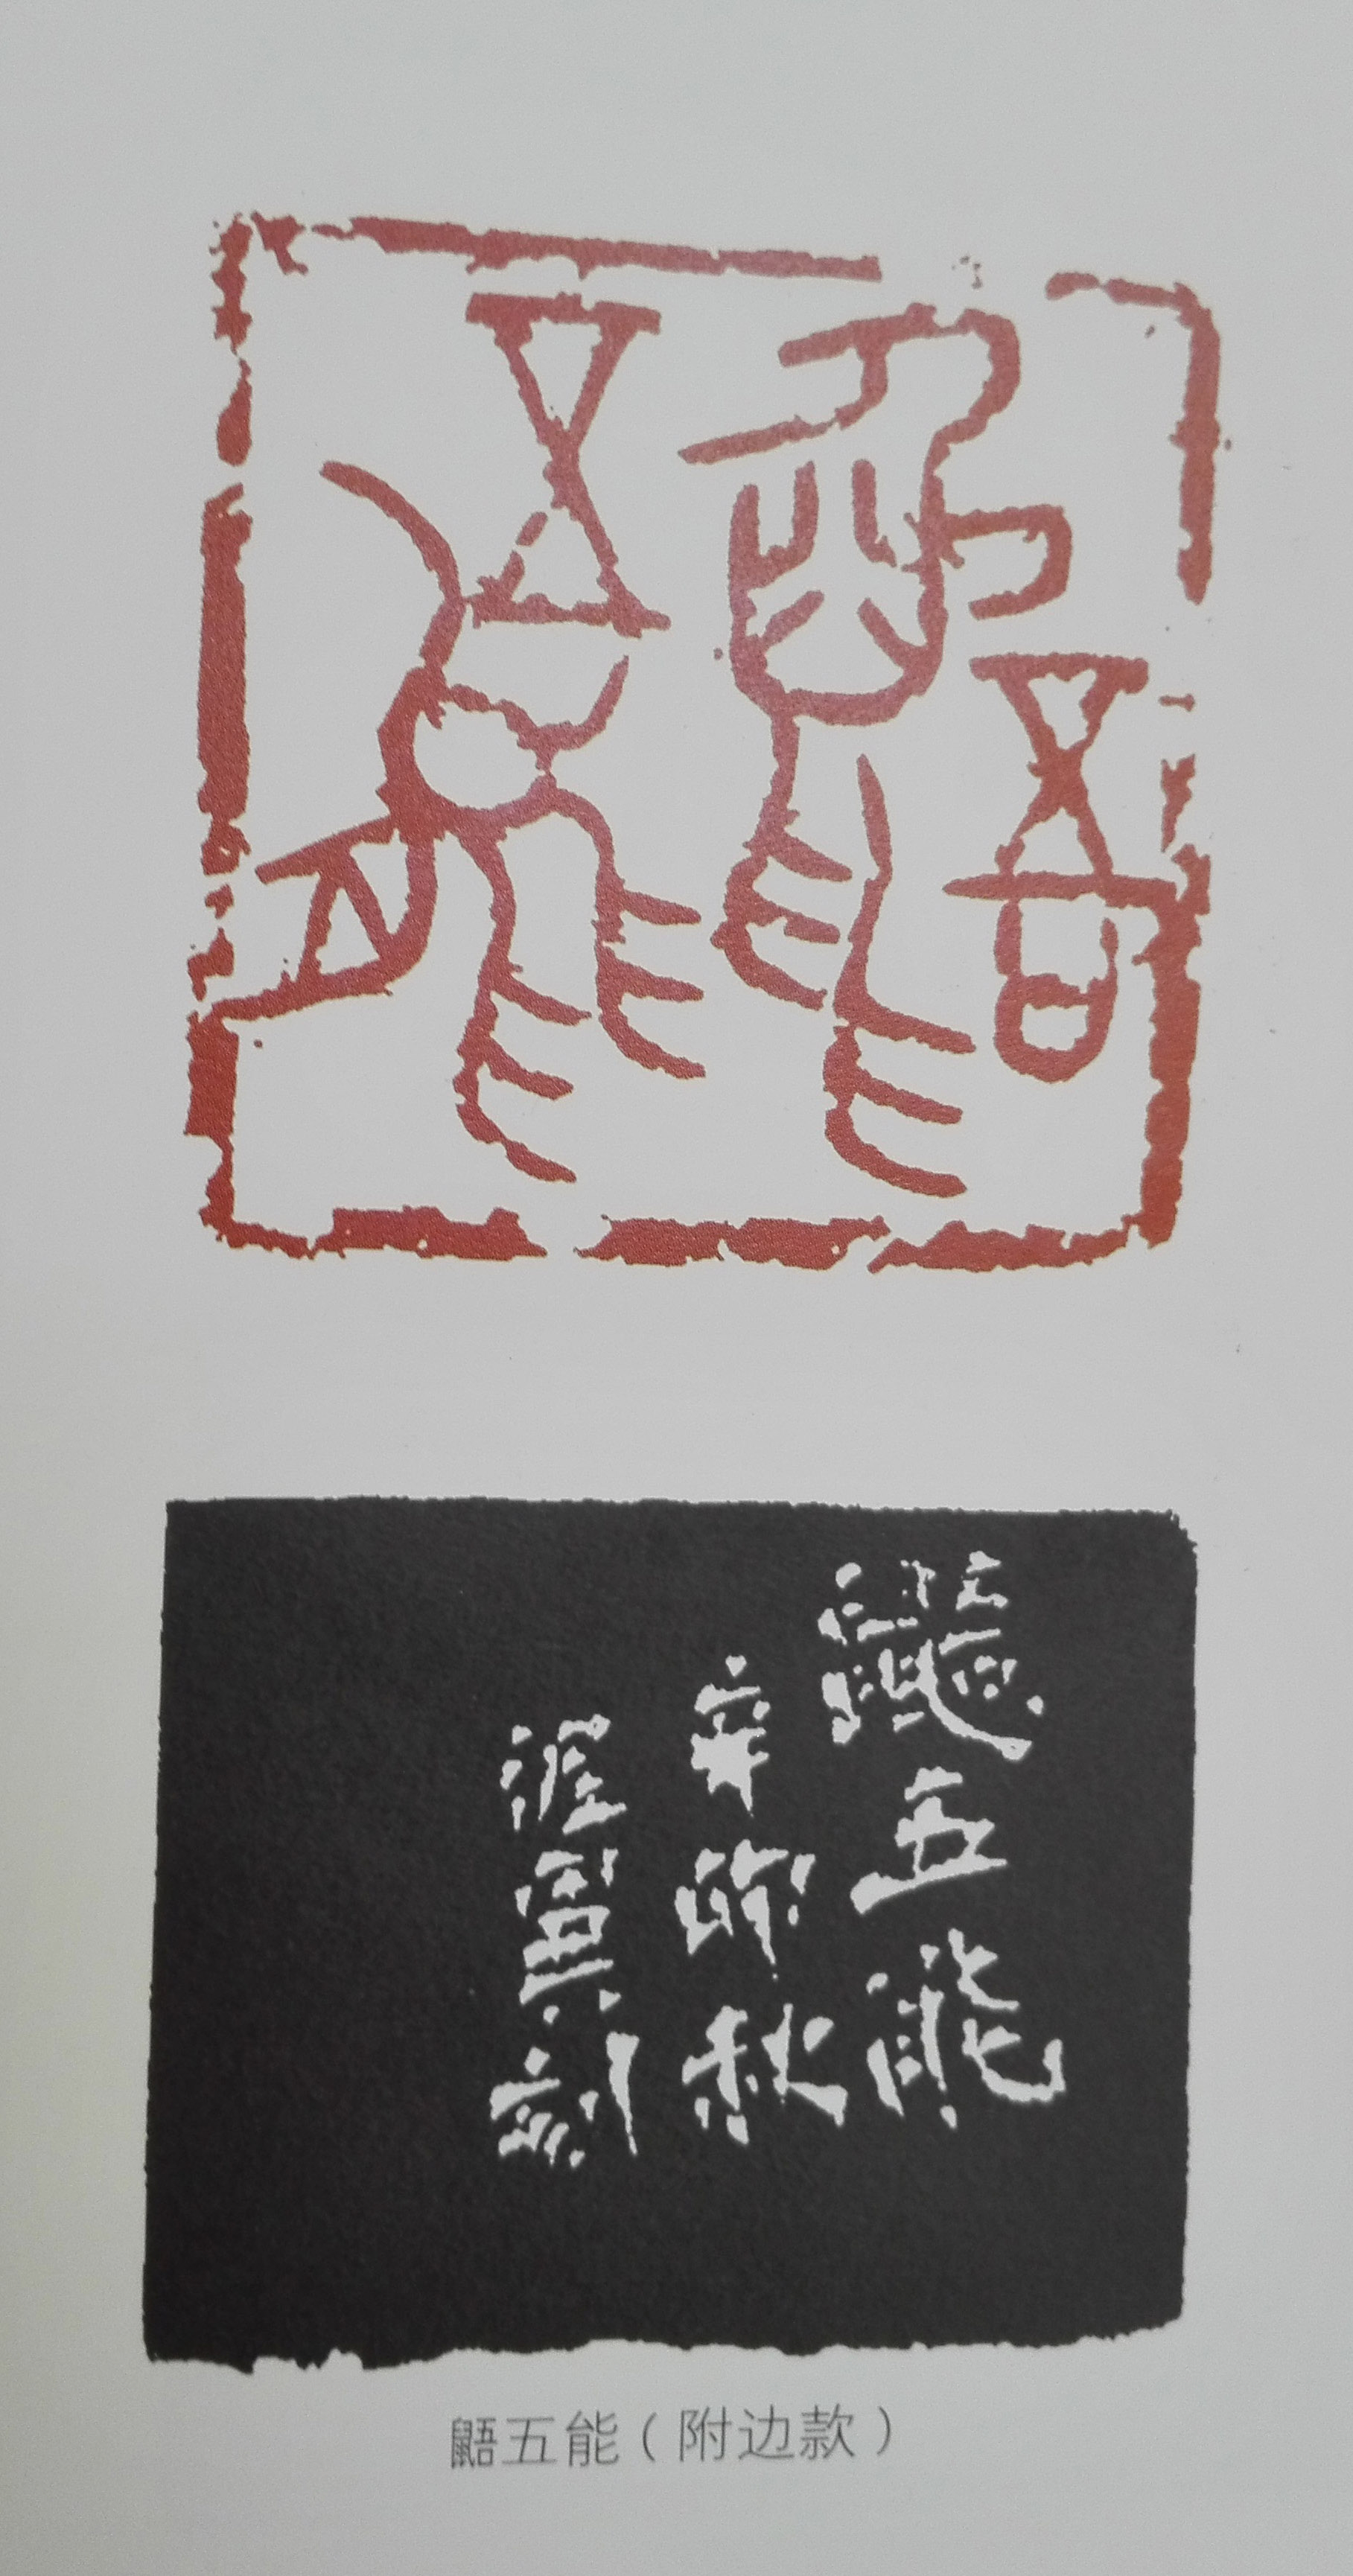 鼯五能
鼯五能
辛卯秋
涯 刻
鼯五能（附边款）